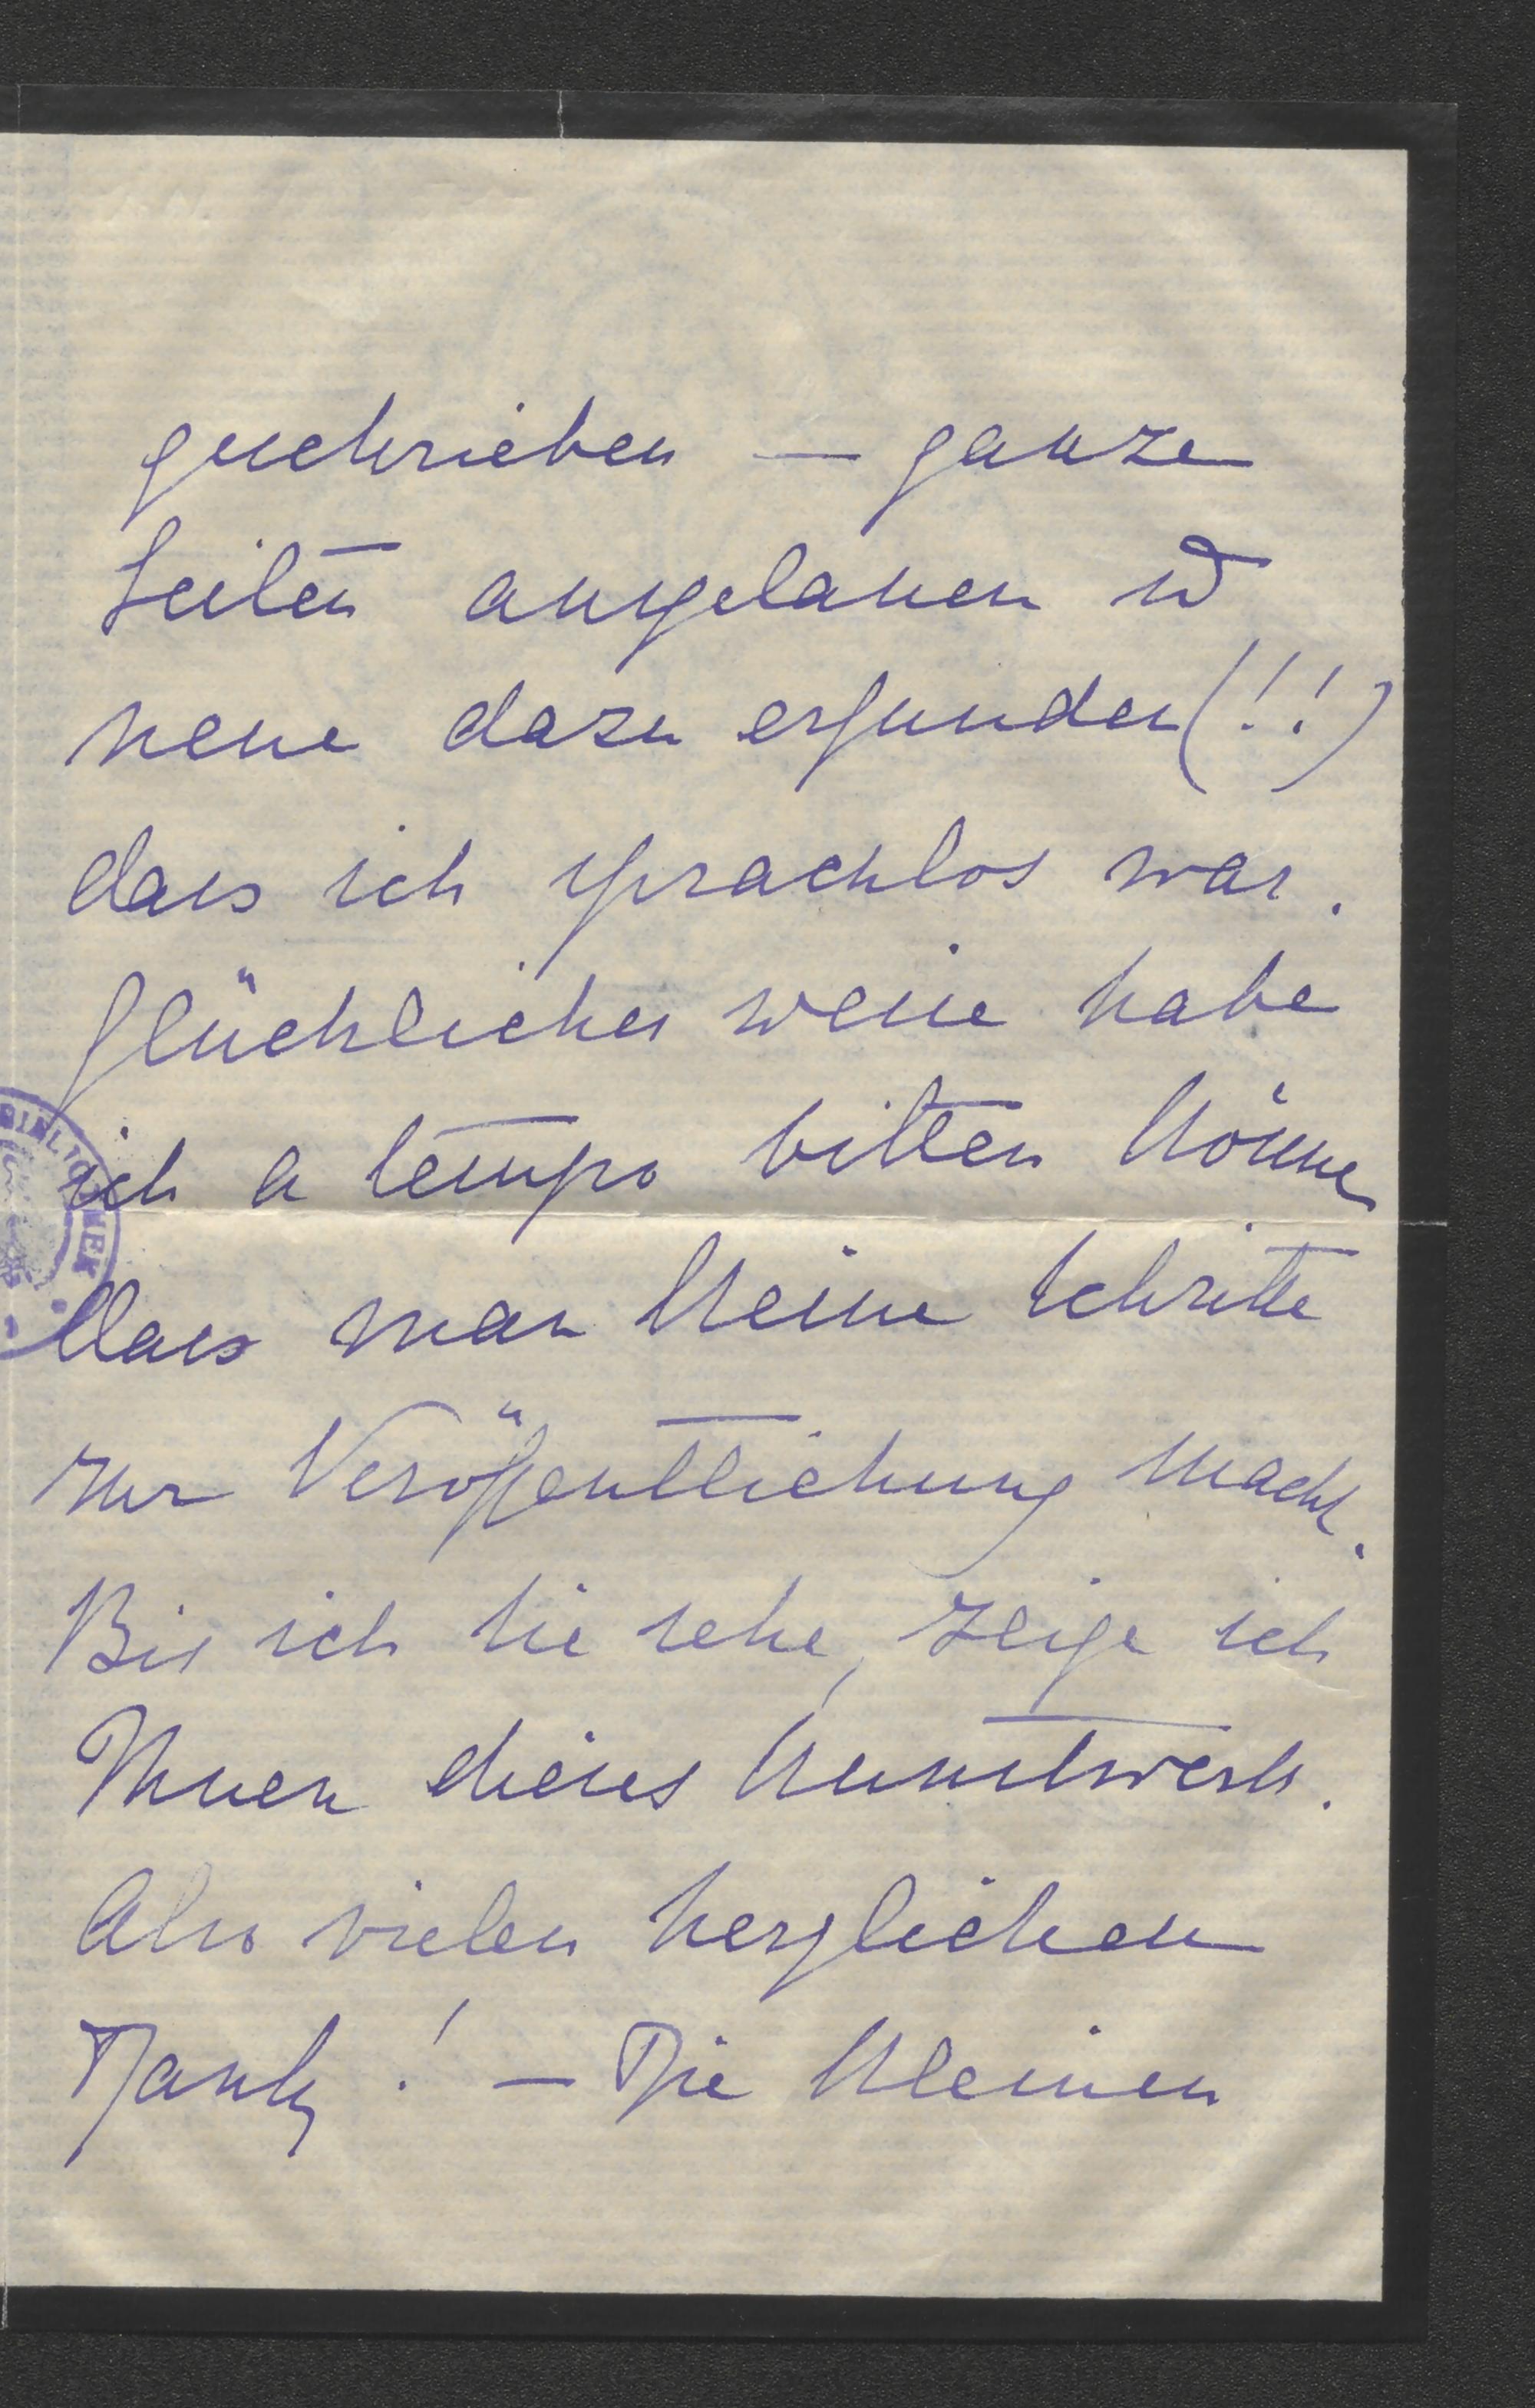 geschrieben — ganze
Seiten ausgelassen u
neue dazu erfunden (!!)
dass ich sprachlos war.
Glücklicher weise habe
ich a tempo bitten können
dass man keine Schritte
zur Veröffentlichung macht.
Bis ich Sie sehe, zeige ich
Ihnen dieses Kunstwerk.
Also vielen herzlichen
Dank! — Die kleinen
BIBLIOTHEK